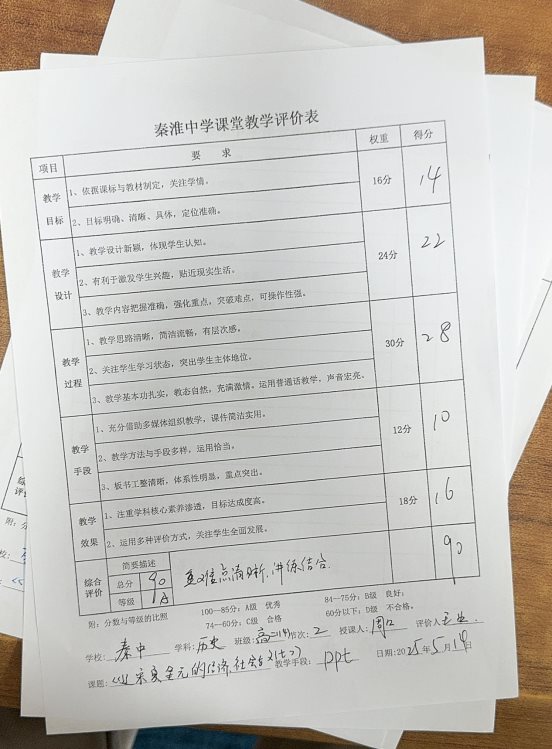 秦淮中学课堂教学评价表
项目 要 求 权重 得分
教学目标 1、依据课标与教材制定，关注学情。 16分 14
2、目标明确、清晰、具体，定位准确。
教学设计 1、教学设计新颖，体现学生认知。 24分 22
2、有利于激发学生兴趣，贴近现实生活。
3、教学内容把握准确，强化重点，突破难点，可操作性强。
教学过程 1、教学思路清晰，简洁流畅，有层次感。 30分 28
2、关注学生学习状态，突出学生主体地位。
3、教学基本功扎实，教态自然，充满激情。运用普通话教学，声音宏亮、
教学手段 1、充分借助多媒体组织教学，课件简洁实用。 12分 10
2、教学方法与手段多样，运用恰当。
3、板书工整清晰，体系性明显，重点突出。
教学效果 1、注重学科核心素养渗透，目标达成度高。 18分 16
2、运用多种评价方式，关注学生全面发展。
综合评价 简要描述 重难点清晰，讲练结合。 90
总分 90
等级 A
附：分数与等级的比照 100—85分：A级 优秀 84—75分：B级 良好；
74—60分：C级 合格 60分以下：D级 不合格。
学校：秦中 学科：历史 班级：高二(4) 节次：2 授课人：周 评价人：
课题：辽宋夏金元的经济、社会与文化 教学手段：ppt 日期：2025年5月14日